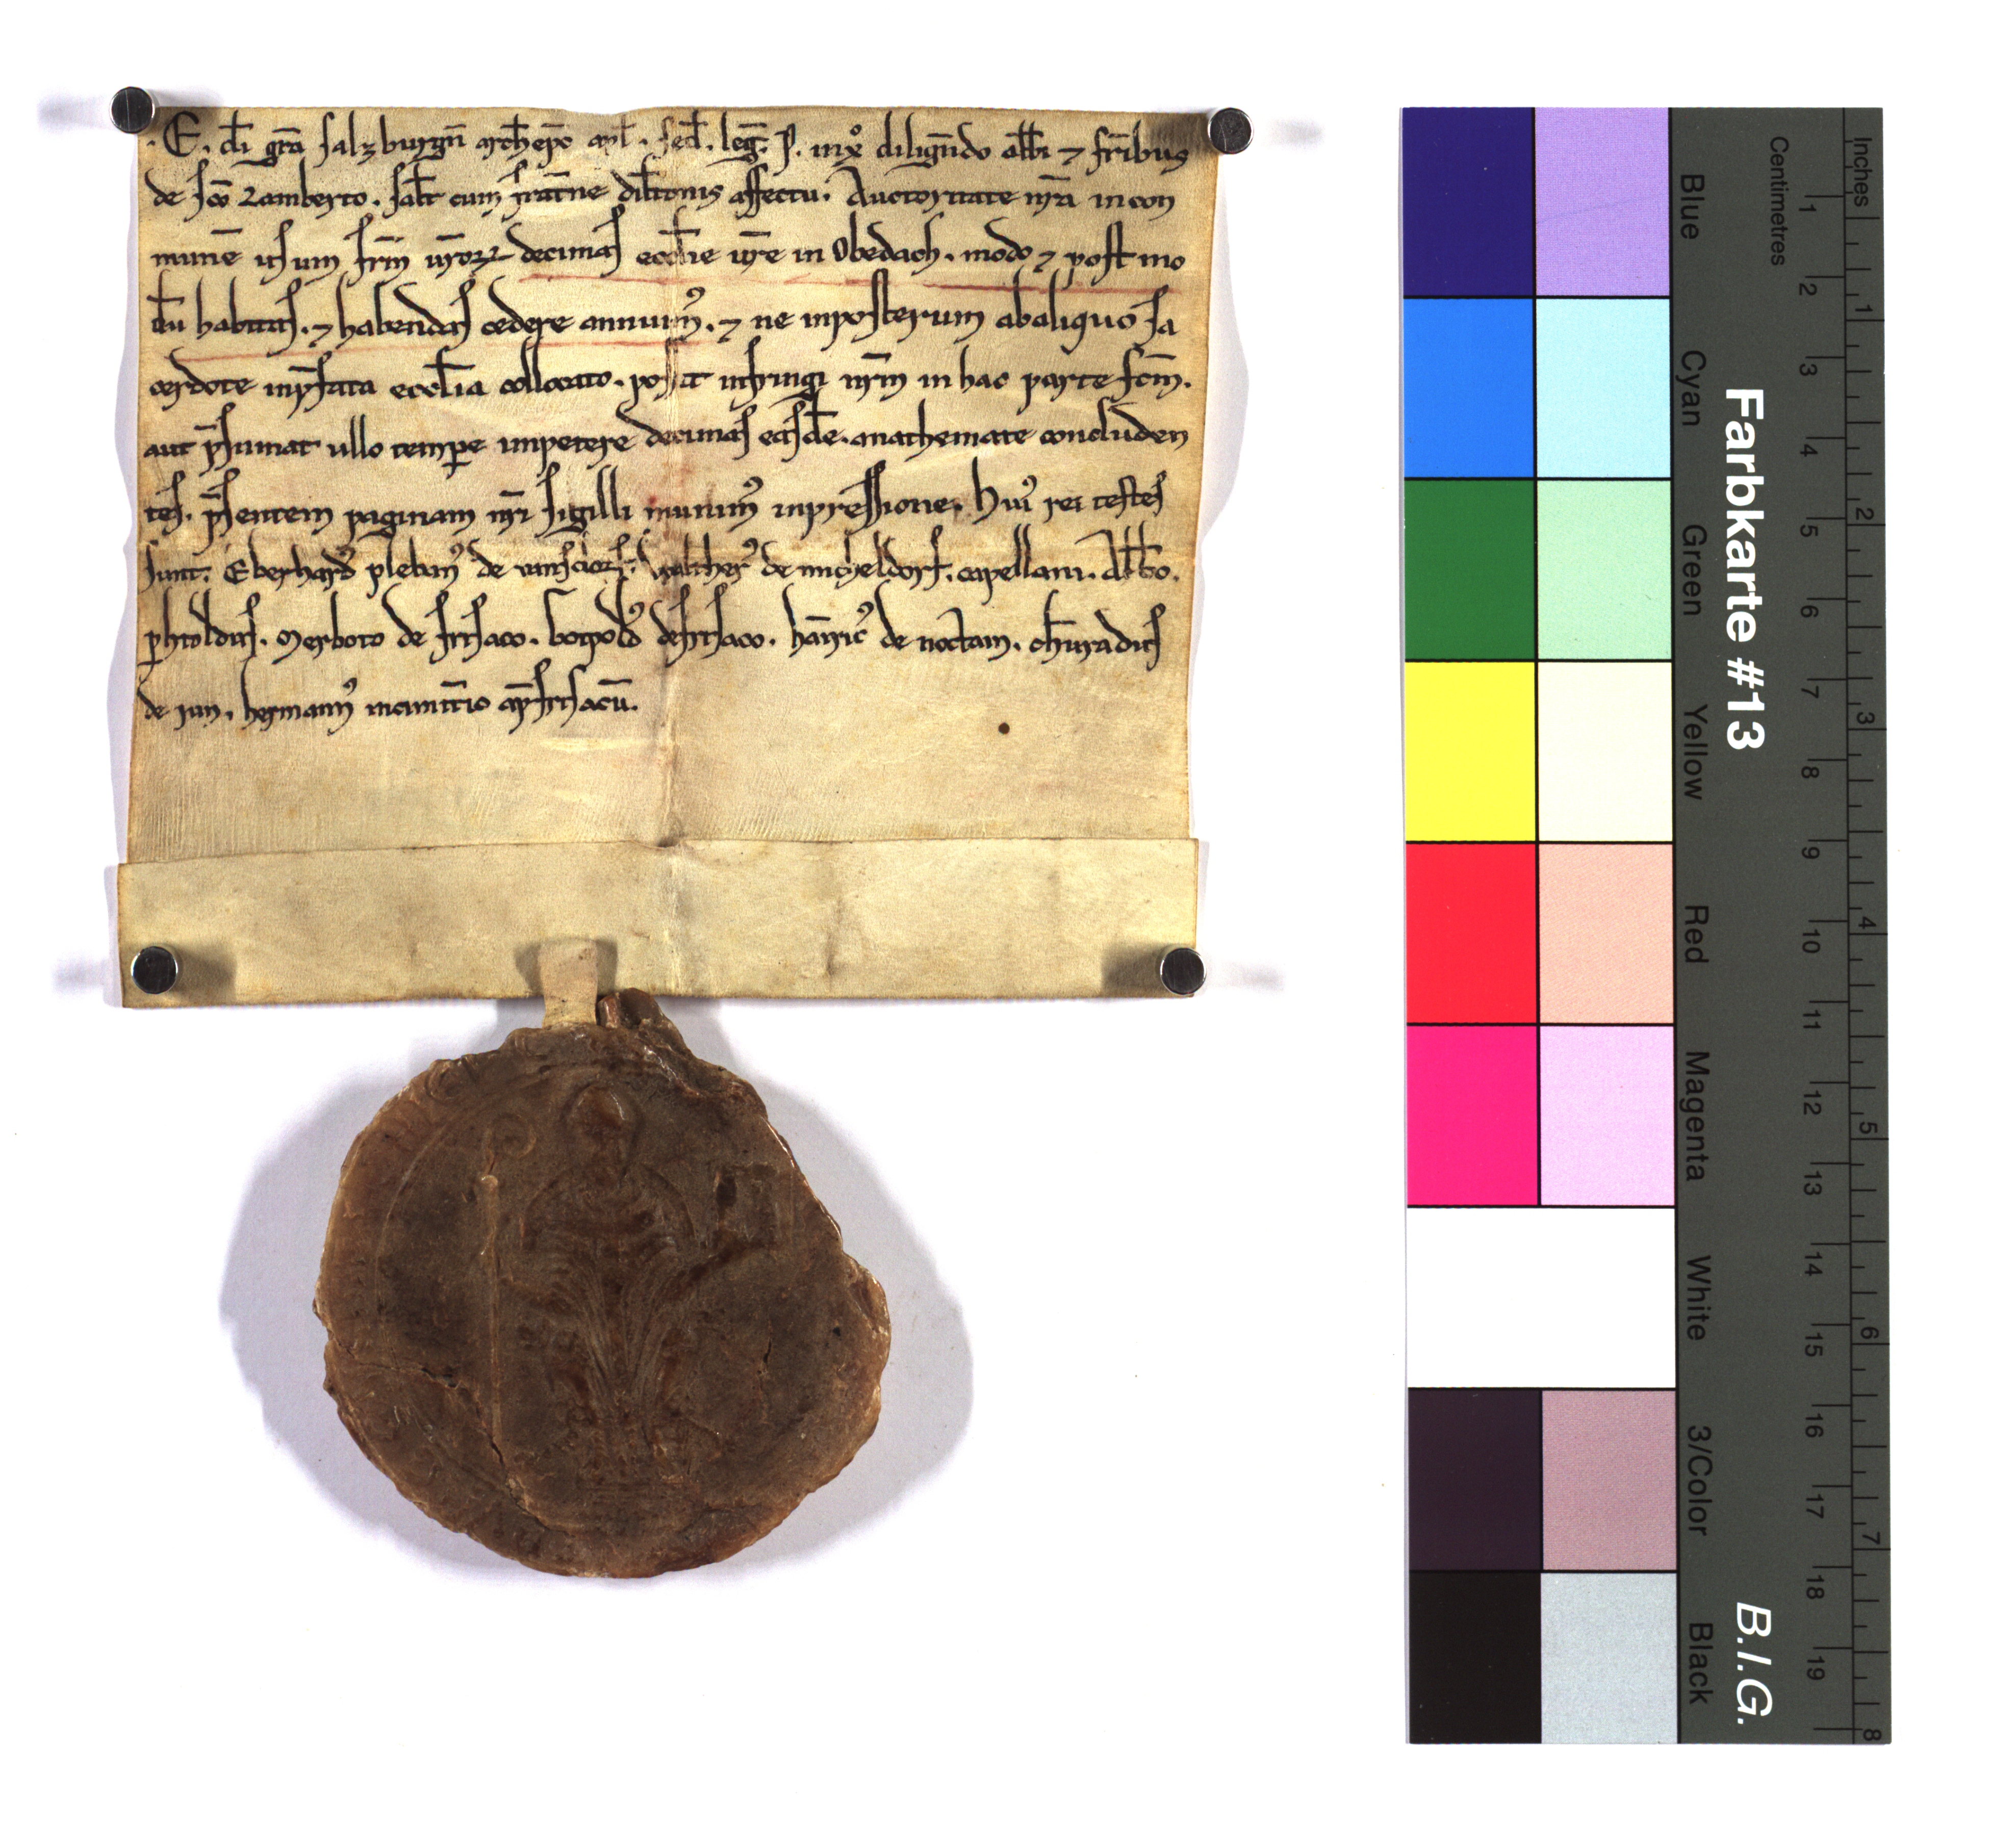 .E. di gra salzburgn archiepo apl. sed. leg. P. in xo diligndo abbi ⁊ fribus
de sco Lamberto. salt cum fratne diltionis affectu. Auctoritate nra in con
mune usum frm uror decimas ecclie ure in Obedach. modo ⁊ post mo
du habitas. ⁊ habendas cedere annuim9. ⁊ ne inposterum abaliquo sa
cerdote inpfata ecclia collocato. possit infringi nrm in hac parte fcm.
aut psumat ullo tempe impetere decimas easde. anathemate concluden
tes. psentem paginam nri sigilli munim9 inpressione. hui9 rei testes
sunt. Eberhard9 pleban9 de Walther9 de micheldorf. capellani. Albo.
phtoldus. Merboto de frisaco. de frisaco. hainric9 de noctam. chunradus
de iun. herman9 ap frisacu.
Farbkarte #13
B.I.G.
Blue Cyan Green Yellow Red Magenta White 3/Color Black
Centimetres
1 2 3 4 5 6 7 8 9 10 11 12 13 14 15 16 17 18 19
Inches
1 2 3 4 5 6 7 8